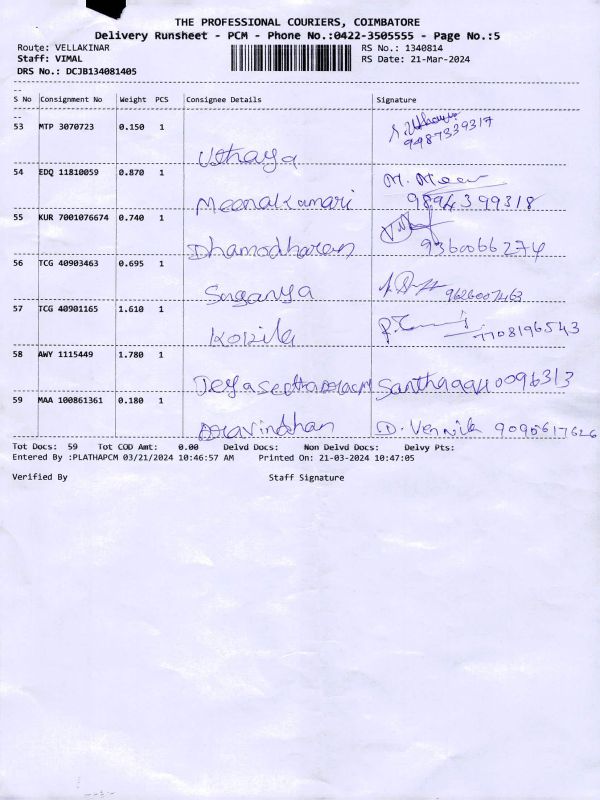 THE PROFESSIONAL COURIERS, COIMBATORE
Delivery Runsheet - PCM - Phone No.:0422-3505555 - Page No.:5
Route: VELLAKINAR RS No.: 1340814
Staff: VIMAL RS Date: 21-Mar-2024
DRS No.: DCJB134081405
S No Consignment No Weight PCS Consignee Details Signature
53 MTP 3070723 0.150 1
Uthaya 9487339317
54 EDQ 11810059 0.870 1 M. Meen
Meenakumari 9894399318
55 KUR 7001076674 0.740 1
Dhamodharen 9360066274
56 TCG 40903463 0.695 1
Suganya 9626007463
57 TCG 40901165 1.610 1
Kokila 7708196543
58 AWY 1115449 1.780 1
59 MAA 100861361 0.180 1
D. Vennila 9095617626
Tot Docs: 59 Tot COD Amt: 0.00 Delvd Docs: Non Delvd Docs: Delvy Pts:
Entered By :PLATHAPCM 03/21/2024 10:46:57 AM Printed On: 21-03-2024 10:47:05
Verified By Staff Signature